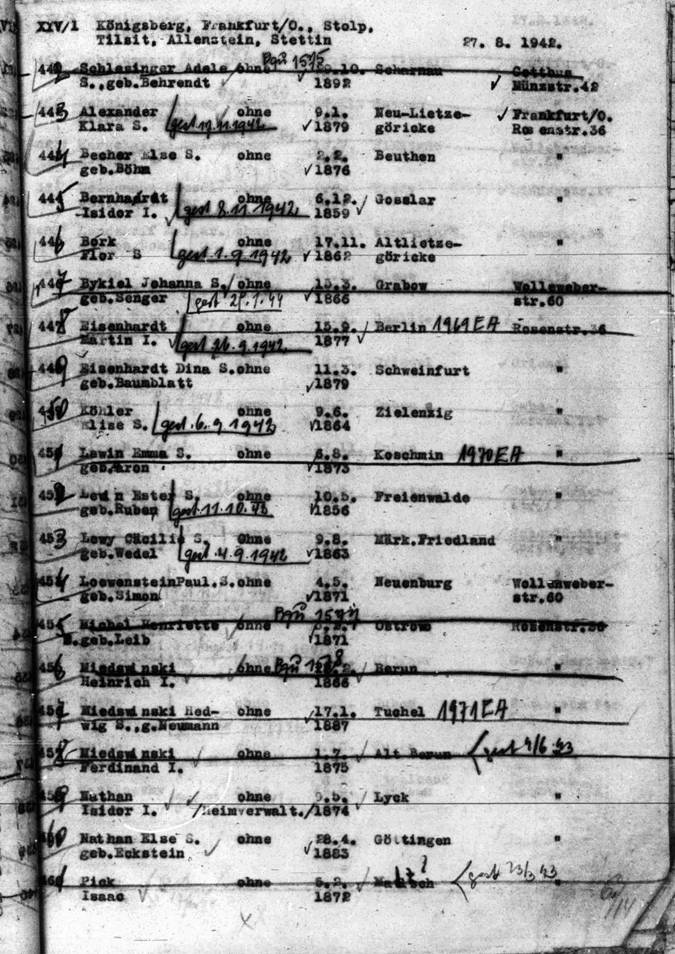 XIV/1 Königsberg, Frankfurt/O., Stolp,
Tilsit, Allenstein, Stettin 27. 8. 1942.
Schlesinger Adele ohne .10. Scharnau Cottbus
S., geb.Behrendt 1892 Münzstr.42
443 Alexander ohne 9.1. Neu-Lietze- Frankfurt/O.
Klara S. gest 1879 göricke Rosenstr.36
444 Becher Else S. ohne 2.2. Beuthen "
geb.Böhm 1876
445 Bernhardt ohne 6.12. Gosslar "
Isidor I. gest 8.11.1942 1859
446 Bork ohne 17.11. Altlietze- "
Flor S gest 1.9.1942 1862 göricke
447 Bykiel Johanna S. ohne Grabow Wollenweber-
geb.Senger gest 1866 str.60
Eisenhardt ohne 15.9. Berlin 1969 EA Rosenstr.36
Martin I. gest 26.9.1942 1877
449 Eisenhardt Dina S.ohne 11.3. Schweinfurt "
geb.Baumblatt 1879
450 Köhler ohne 9.6. Zielenzig "
Elise S. gest.6.9.1942 1864
451 Lewin Emma S. ohne 6.8. Koschmin 1970 EA
geb.Aron 1873
452 Lewin Ester S. ohne 10.5. Freienwalde "
geb.Ruben gest 11.10.42 1856
453 Lewy Cäcilie S. Ohne 9.8. Märk.Friedland "
geb.Wedel gest 4.9.1942 1863
454 LoewensteinPaul.S.ohne 4.5. Neuenburg Wollenweber-
geb.Simon 1871 str.60
Michel Henriette ohne Ostrowo Rosenstr.36
S.geb.Leib 1871
456 Miedswinski ohne Berun "
Heinrich I. 1866
457 Miedswinski Hed- ohne 17.1. Tuchel 1971 EA "
wig S.,g.Neumann 1887
458 Miedswinski ohne 1.7. Alt Berun gest 4/6 43
Ferdinand I. 1875
459 Nathan ohne 9.5. Lyck "
Isidor I. /Heimverwalt./ 1874
460 Nathan Else S. ohne 28.4. Göttingen "
geb.Eckstein 1883
461 Pick ohne 5.2. gest 23/3 43
Isaac 1872